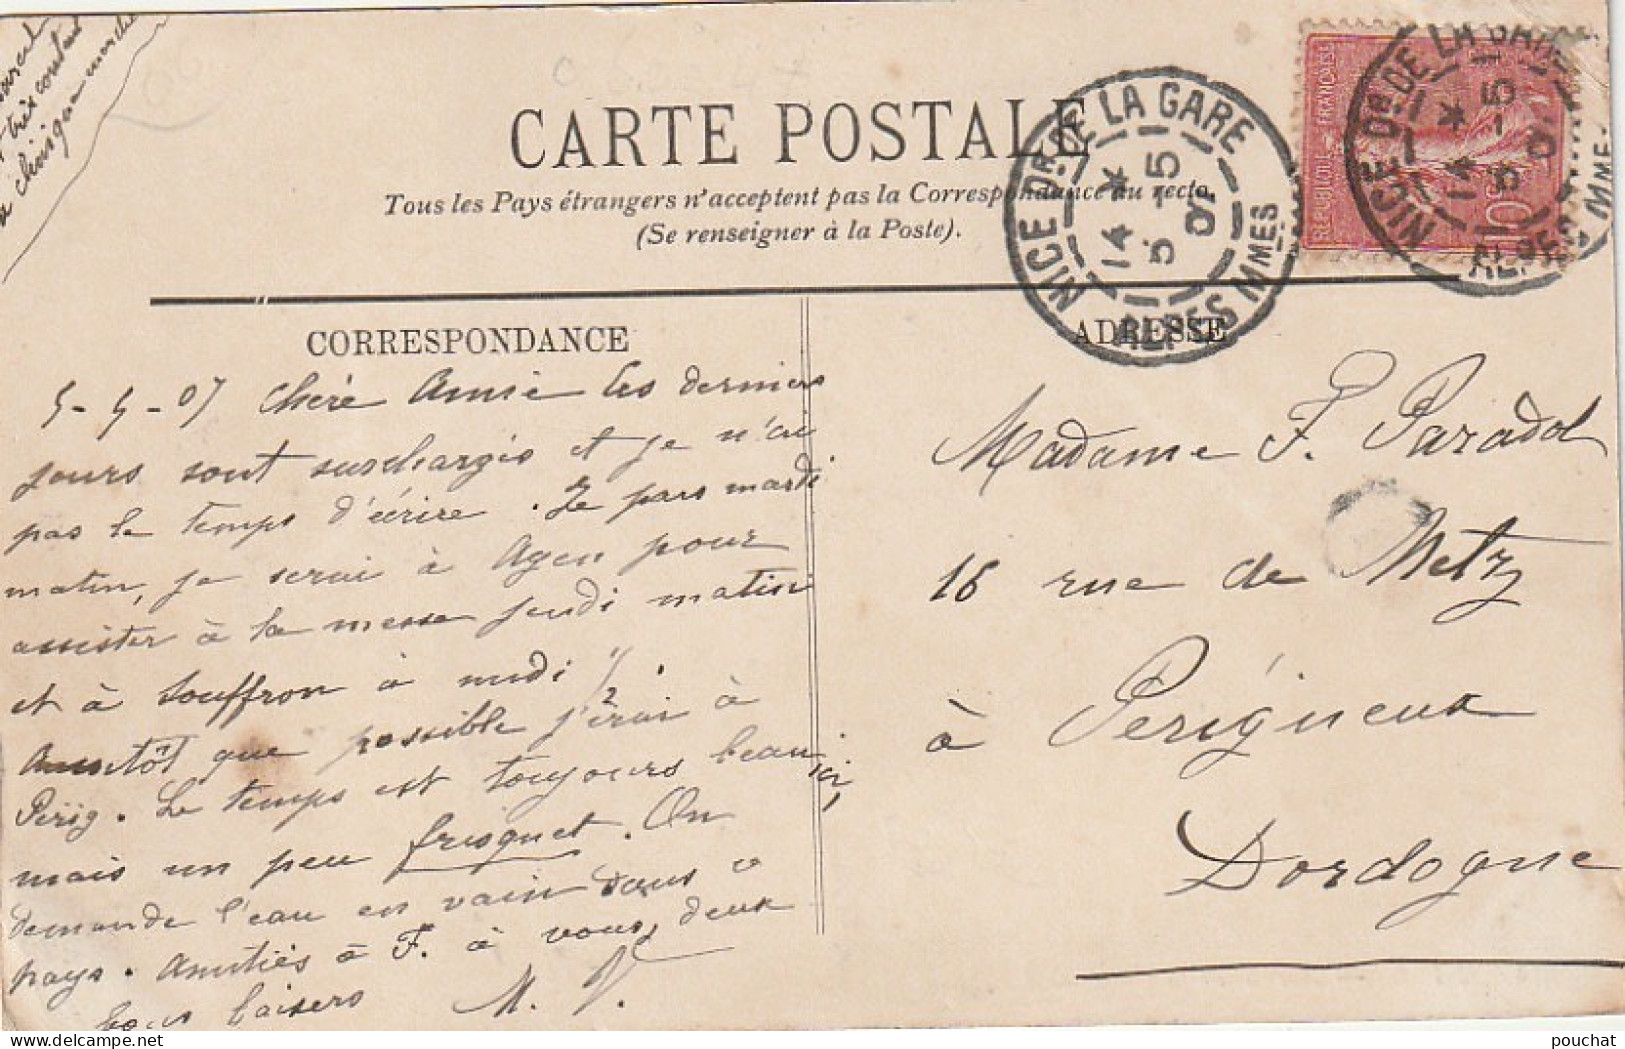 très content
marche
CARTE POSTALE
Tous les Pays étrangers n'acceptent pas la Correspondance au recto.
(Se renseigner à la Poste).
NICE Dr DE LA GARE
14 * 
5 - 5
07
ALPES MMES
REPUBLIQUE FRANÇAISE
10
NICE Dr DE LA GARE
14 *
5 - 5
ALPES MMES
CORRESPONDANCE
ADRESSE
5-5-07 Chère Amie Les derniers
jours sont surchargés et je n'ai
pas le temps d'écrire. Je pars mardi
matin, je serai à Agen pour
assister à la messe jeudi matin
et à Souffron à midi 1/2.
Aussitôt que possible j'irai à
Périg. Le temps est toujours beau ici,
mais un peu frisquet. On
demande l'eau en vain dans
pays. Amitiés à F. à vous deux
bons baisers M. V.
Madame F. Paradol
16 rue de Metz
à Périgueux
Dordogne
pouchat